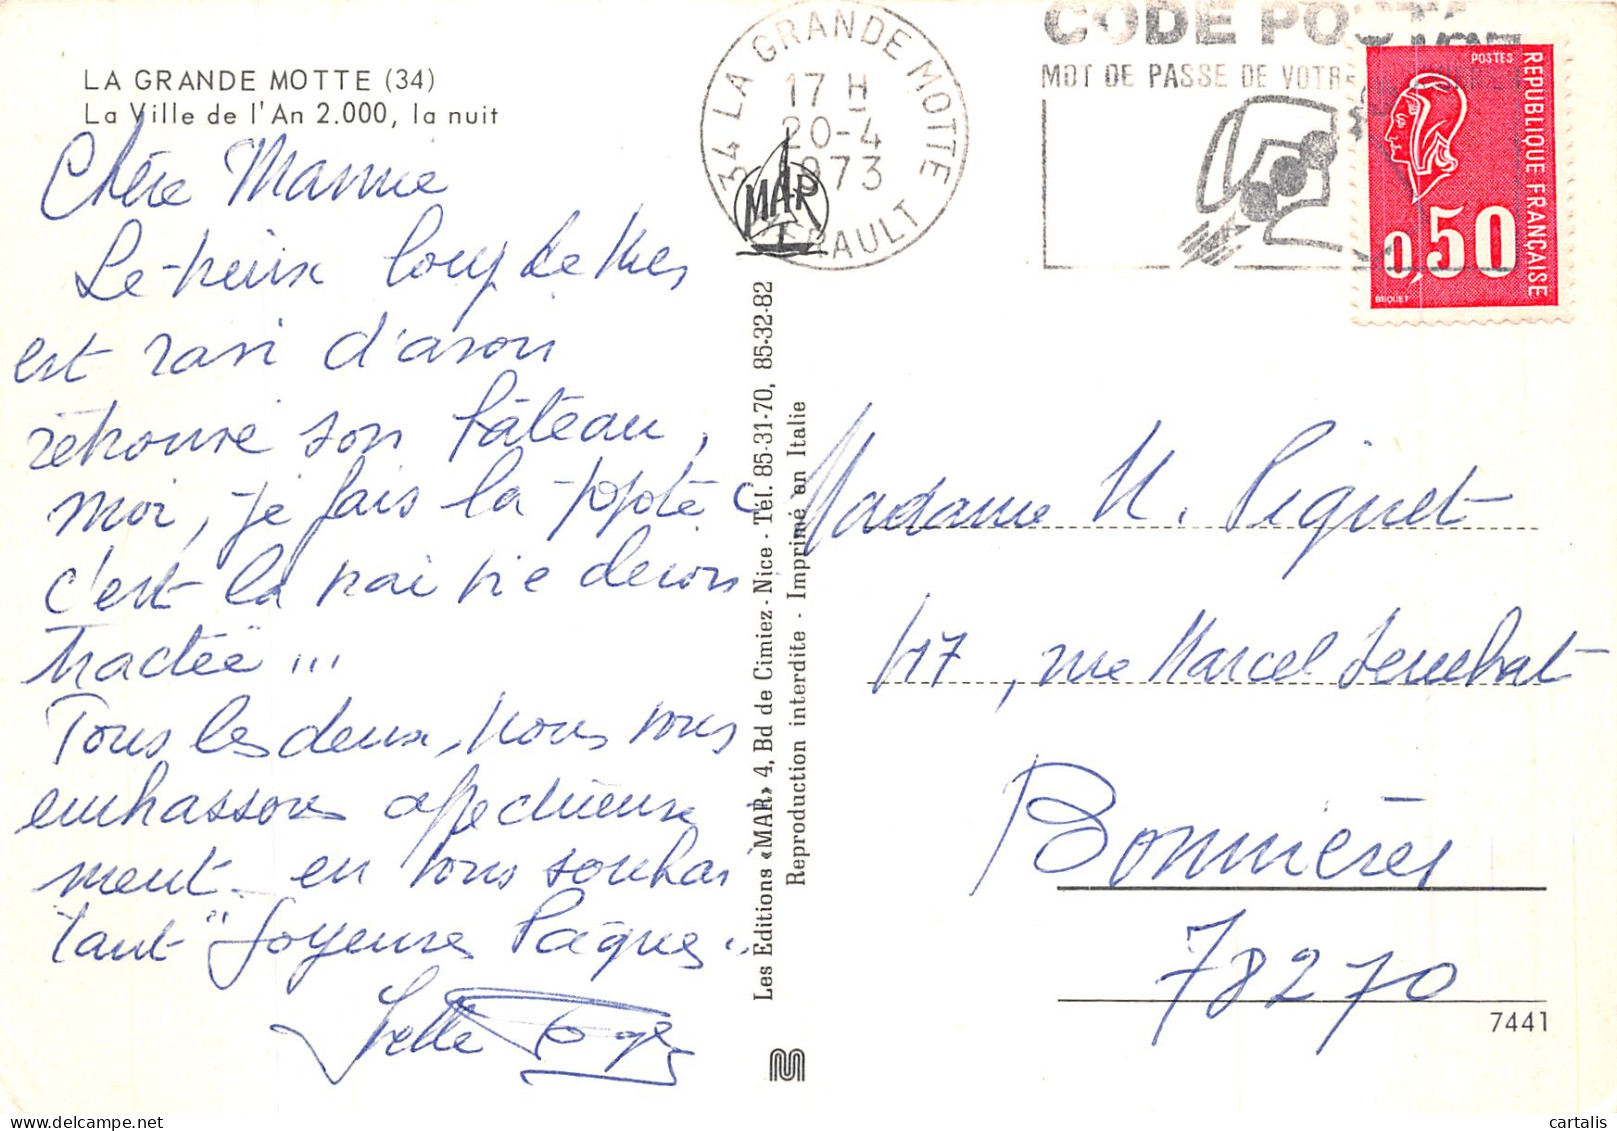 LA GRANDE MOTTE (34)
La Ville de l'An 2.000, la nuit
Chère Mamie
Le vieux loup de Mer
est ravi d'avoir
retrouvé son bâteau,
moi, je fais la popote
c'est la vraie vie decon
tractée" ...
Tous les deux, nous vous
embrassons affectueuse
ment en vous souhai
tant "Joyeuses Pâques"
Yvette
34 LA GRANDE MOTTE
17 H
20-4
1973
HERAULT
MAR
CODE POSTAL
MOT DE PASSE DE VOTRE
POSTES
REPUBLIQUE FRANÇAISE
0,50
BEQUET
Les Editions «MAR» 4, Bd de Cimiez - Nice - Tél. 85-31-70, 85-32-82
Reproduction interdite - Imprimé en Italie
Madame M. Piquet
117, rue Marcel Sembat
Bonnières
78270
7441